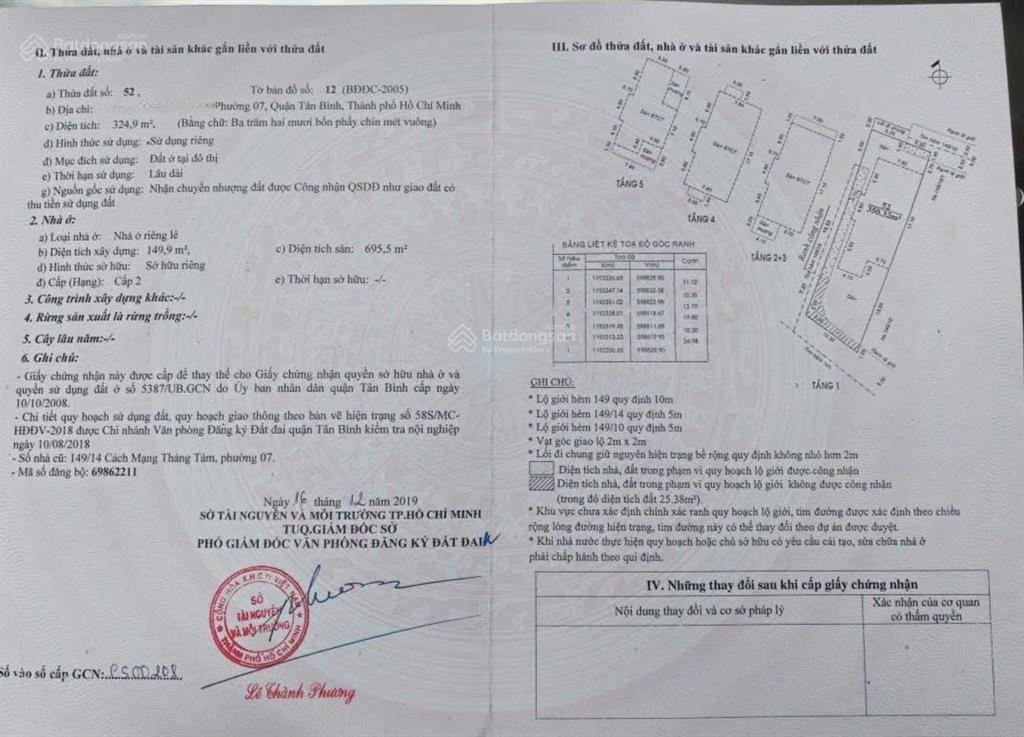 II. Thửa đất, nhà ở và tài sản khác gắn liền với thửa đất
1. Thửa đất:
a) Thửa đất số: 52, Tờ bản đồ số: 12 (BĐĐC-2005)
b) Địa chỉ: Phường 07, Quận Tân Bình, Thành phố Hồ Chí Minh
c) Diện tích: 324,9 m², (Bằng chữ: Ba trăm hai mươi bốn phẩy chín mét vuông)
d) Hình thức sử dụng: Sử dụng riêng
đ) Mục đích sử dụng: Đất ở tại đô thị
e) Thời hạn sử dụng: Lâu dài
g) Nguồn gốc sử dụng: Nhận chuyển nhượng đất được Công nhận QSDĐ như giao đất có
thu tiền sử dụng đất
2. Nhà ở:
a) Loại nhà ở: Nhà ở riêng lẻ
b) Diện tích xây dựng: 149,9 m², c) Diện tích sàn: 695,5 m²
d) Hình thức sở hữu: Sở hữu riêng
đ) Cấp (Hạng): Cấp 2 e) Thời hạn sở hữu: -/-
3. Công trình xây dựng khác:-/-
4. Rừng sản xuất là rừng trồng:-/-
5. Cây lâu năm:-/-
6. Ghi chú:
- Giấy chứng nhận này được cấp để thay thế cho Giấy chứng nhận quyền sở hữu nhà ở và
quyền sử dụng đất ở số 5387/UB.GCN do Ủy ban nhân dân quận Tân Bình cấp ngày
10/10/2008.
- Chi tiết quy hoạch sử dụng đất, quy hoạch giao thông theo bản vẽ hiện trạng số 58S/MC-
HĐĐV-2018 được Chi nhánh Văn phòng Đăng ký Đất đai quận Tân Bình kiểm tra nội nghiệp
ngày 10/08/2018
- Số nhà cũ: 149/14 Cách Mạng Tháng Tám, phường 07.
- Mã số đăng bộ: 69862211
Ngày 16 tháng 12 năm 2019
SỞ TÀI NGUYÊN VÀ MÔI TRƯỜNG TP.HỒ CHÍ MINH
TUQ.GIÁM ĐỐC SỞ
PHÓ GIÁM ĐỐC VĂN PHÒNG ĐĂNG KÝ ĐẤT ĐAI
CỘNG HÒA X.H.C.N VIỆT NAM
SỞ
TÀI NGUYÊN
VÀ MÔI TRƯỜNG
THÀNH PHỐ HỒ CHÍ MINH
Lê Thành Phương
Số vào sổ cấp GCN: CS00208
III. Sơ đồ thửa đất, nhà ở và tài sản khác gắn liền với thửa đất
TẦNG 5
TẦNG 4
TẦNG 2+3
TẦNG 1
Sân BTCT
Sân BTCT
Sân BTCT
52
Ranh chứng nhận
BẢNG LIỆT KÊ TỌA ĐỘ GÓC RANH
Số hiệu điểm Tọa độ Cạnh
X(m) Y(m)
GHI CHÚ:
* Lộ giới hẻm 149 quy định 10m
* Lộ giới hẻm 149/14 quy định 5m
* Lộ giới hẻm 149/10 quy định 5m
* Vạt góc giao lộ 2m x 2m
* Lối đi chung giữ nguyên hiện trạng bề rộng quy định không nhỏ hơn 2m
Diện tích nhà, đất trong phạm vi quy hoạch lộ giới được công nhận
Diện tích nhà, đất trong phạm vi quy hoạch lộ giới không được công nhận
(trong đó diện tích đất 25.38m²).
* Khu vực chưa xác định chính xác ranh quy hoạch lộ giới, tim đường được xác định theo chiều
rộng lòng đường hiện trạng, tim đường này có thể thay đổi theo dự án được duyệt.
* Khi nhà nước thực hiện quy hoạch hoặc chủ sở hữu có yêu cầu cải tạo, sửa chữa nhà ở
phải chấp hành theo qui định.
IV. Những thay đổi sau khi cấp giấy chứng nhận
Nội dung thay đổi và cơ sở pháp lý
Xác nhận của cơ quan
có thẩm quyền
Batdongsan
by PropertyGuru